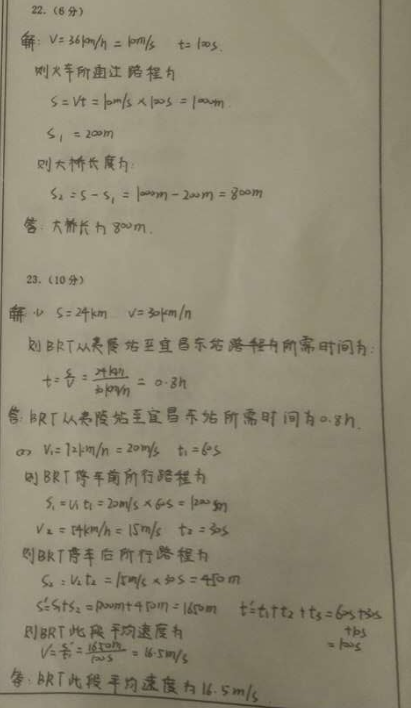 22.（6分）
解: V=36km/h=10m/s t=100s.
则火车所通过路程为
S=Vt=10m/s×100s=1000m.
S₁=200m
则大桥长度为:
S₂=S-S₁=1000m-200m=800m
答: 大桥长为800m.
23.（10分）
解 (1) S=24km V=30km/h
则BRT从夷陵站至宜昌东站所需时间为:
t=S/V=24km/30km/h=0.8h
答: BRT从夷陵站至宜昌东站所需时间为0.8h.
(2) V₁=72km/h=20m/s t₁=60s
则BRT停车前所行路程为
S₁=V₁t₁=20m/s×60s=1200m
V₂=54km/h=15m/s t₂=30s
则BRT停车后所行路程为
S₂=V₂t₂=15m/s×30s=450m
S'=S₁+S₂=1200m+450m=1650m t'=t₁+t₂+t₃=60s+30s
+10s
=100s
则BRT此段平均速度为
V=S'/t'=1650m/100s=16.5m/s
答: BRT此段平均速度为16.5m/s